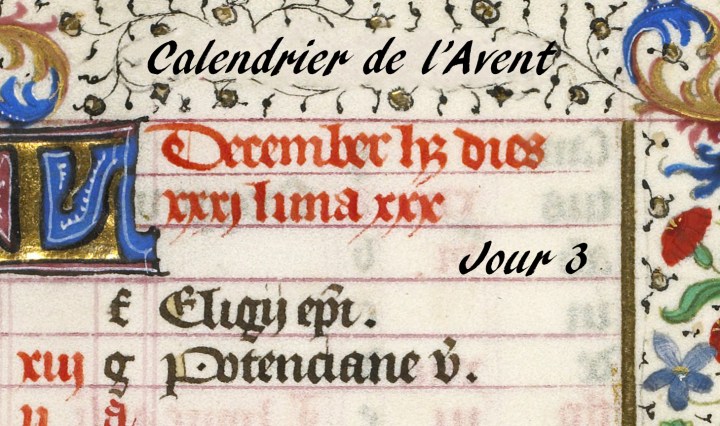 Calendrier de l'Avent
KL
December hȝ dies
xxxj luna xxx
Jour 3
f Eligij epi.
xiij g Potenciane v.
ij A